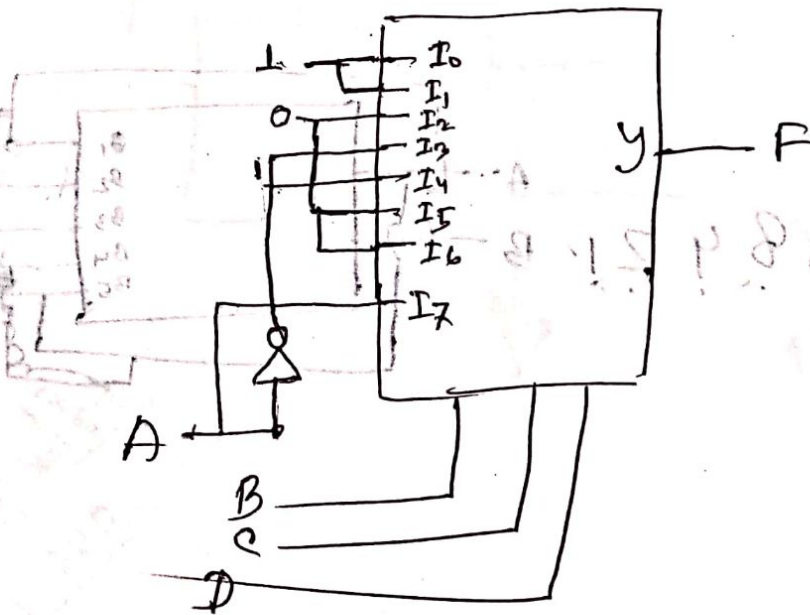 1 I0
I1
0 I2
I3
1 I4
I5
I6
I7
Y F
A
B
C
D